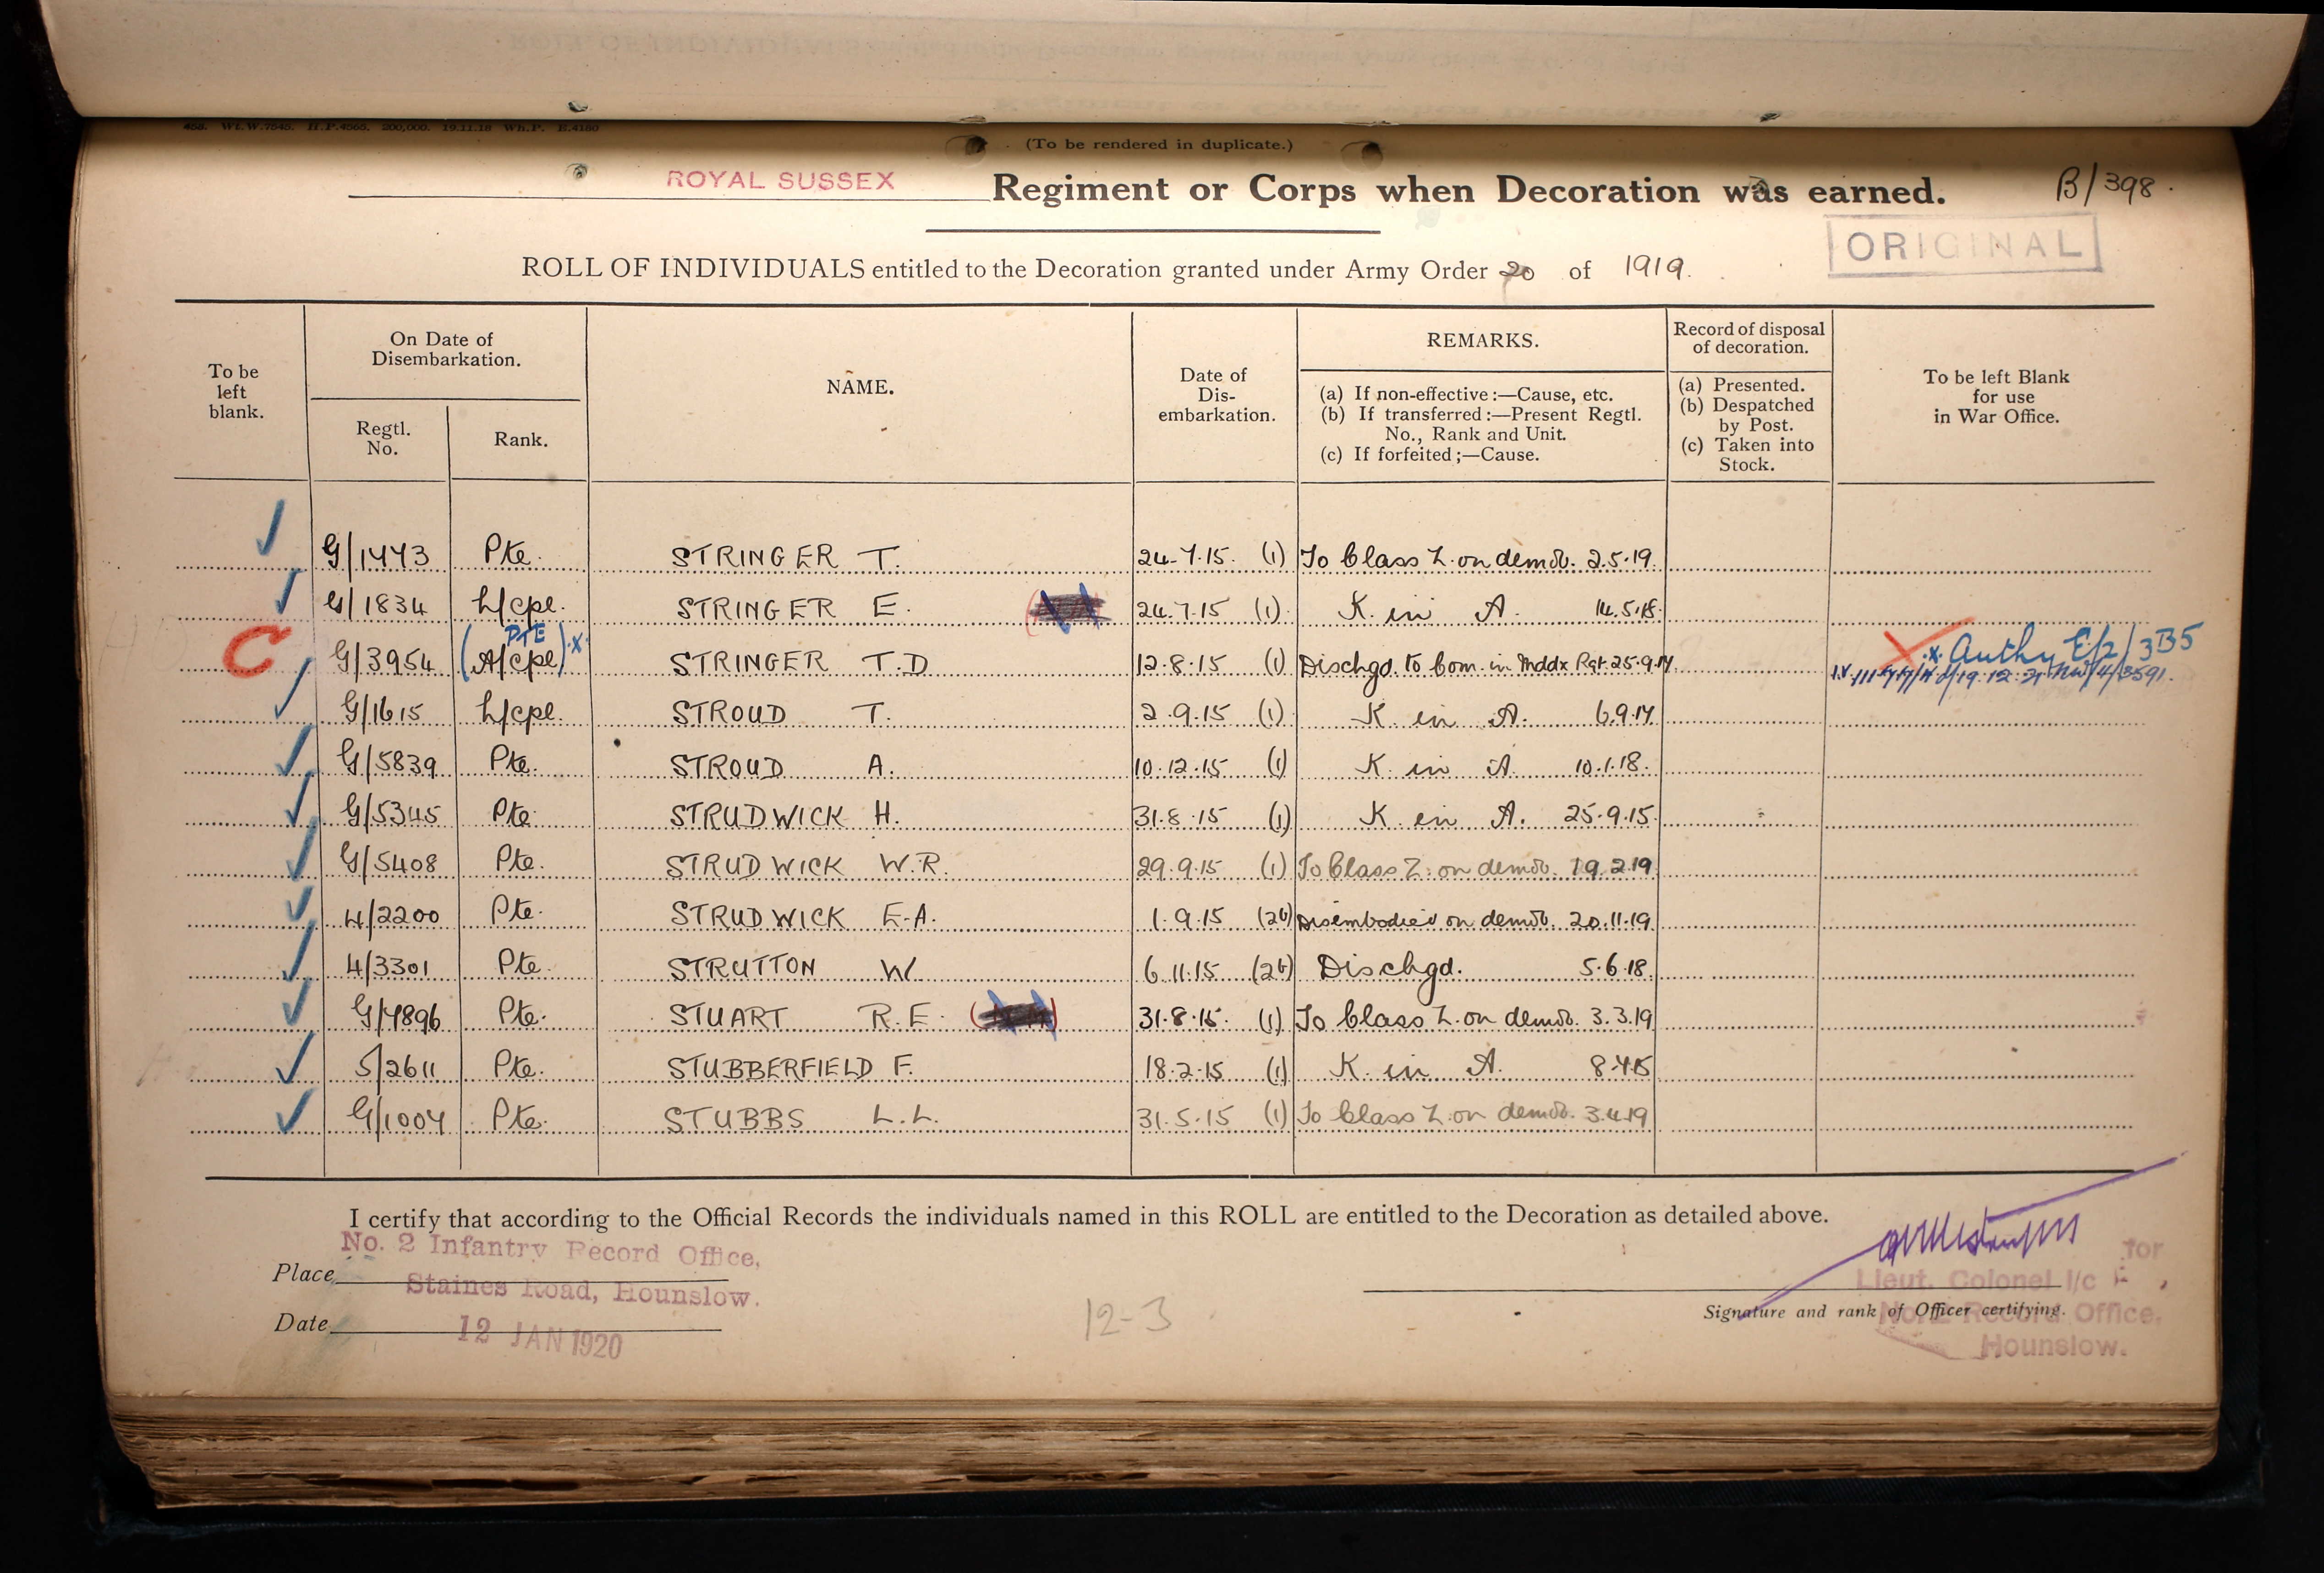 458. Wt.W.7545. H.P.4566. 200,000. 19.11.18 Wh.P. E.4180
(To be rendered in duplicate.)
ROYAL SUSSEX Regiment or Corps when Decoration was earned. B/398.
ORIGINAL
ROLL OF INDIVIDUALS entitled to the Decoration granted under Army Order 20 of 1919.
To be left blank.
On Date of Disembarkation.
Regtl. No.
Rank.
NAME.
Date of Dis-embarkation.
REMARKS.
(a) If non-effective:—Cause, etc.
(b) If transferred:—Present Regtl. No., Rank and Unit.
(c) If forfeited;—Cause.
Record of disposal of decoration.
(a) Presented.
(b) Despatched by Post.
(c) Taken into Stock.
To be left Blank for use in War Office.
G/1773 Pte. STRINGER T. 24-7.15. (1) To Class Z. on demob. 2.5.19.
G/1834 L/cpl. STRINGER E. 24.7.15 (1) K in A. 14.5.18.
C G/3954 (A/Cpl) PTE x STRINGER T.D 12.8.15 (1) Dischgd. to Com. in Mddx Rgt. 25.9.17. x Authy E/2/3B5
G/1615 L/cpl. STROUD T. 2.9.15 (1) K in A. 6.9.17
G/5839 Pte. STROUD A. 10.12.15 (1) K in A 10.1.18.
G/5345 Pte. STRUDWICK H. 31.8.15 (1) K in A. 25.9.15.
G/5408 Pte. STRUDWICK W.R. 29.9.15 (1) To Class Z. on demob. 19.2.19.
4/2200 Pte. STRUDWICK E.A. 1.9.15 (2b) Disembodied on demob. 20.11.19
4/3301 Pte. STRUTTON W. 6.11.15 (2b) Dischgd. 5.6.18.
G/7896 Pte. STUART R.E. 31.8.15. (1) To Class Z. on demob. 3.3.19
S/2611 Pte. STUBBERFIELD F. 18.2.15 (1) K in A. 8.7.15
G/1007 Pte. STUBBS L.L. 31.5.15 (1) To Class Z. on demob. 3.4.19
I certify that according to the Official Records the individuals named in this ROLL are entitled to the Decoration as detailed above.
Place No. 2 Infantry Record Office,
Staines Road, Hounslow.
Date 12 JAN 1920
12-3
for
Lieut. Colonel I/c
Signature and rank of Officer certifying.
No. 2 Record Office,
Hounslow.